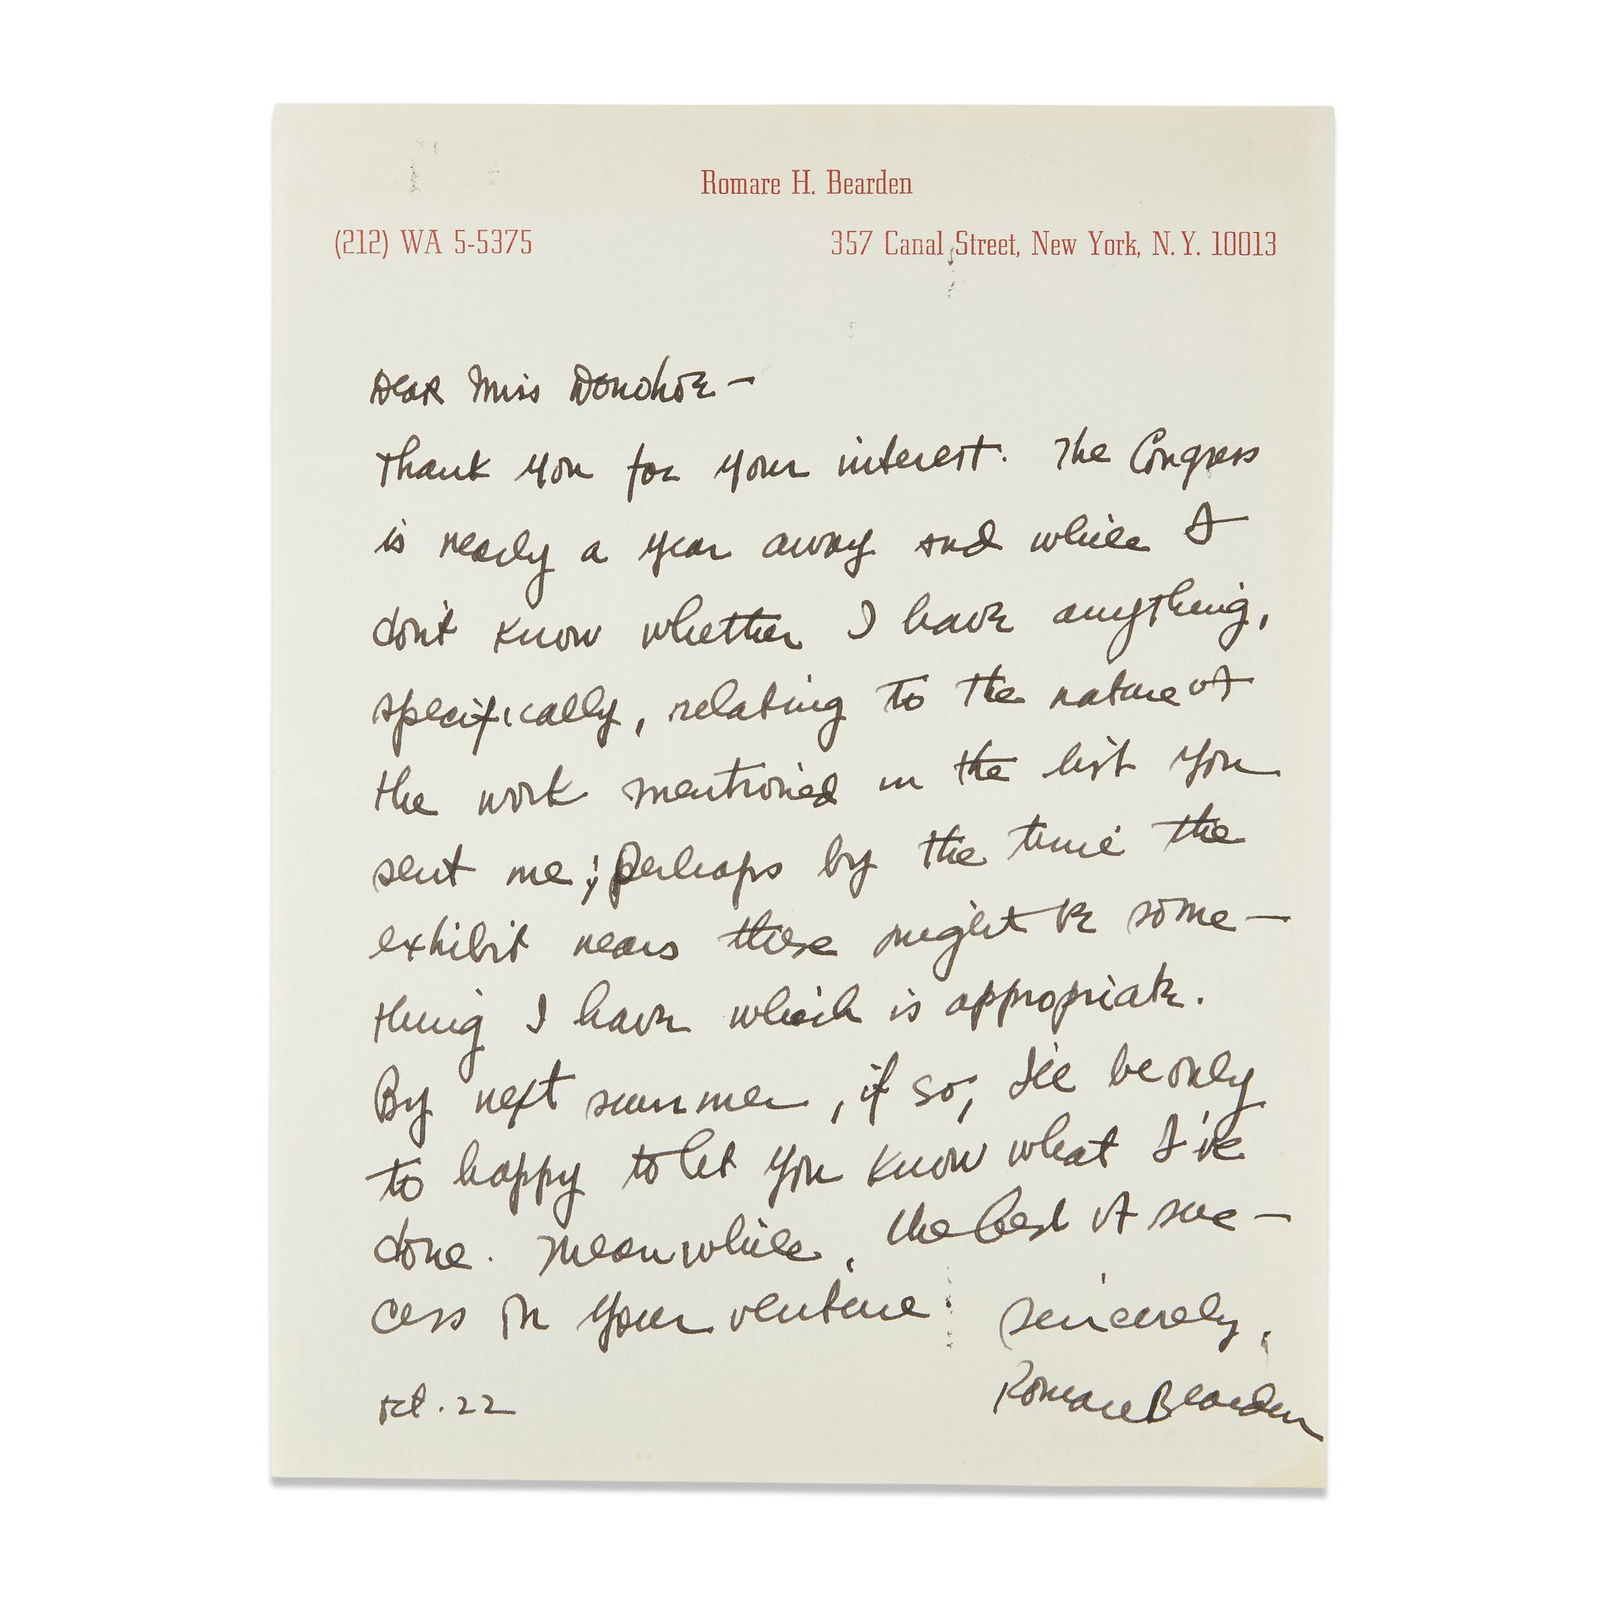 Romare H. Bearden
(212) WA 5-5375
357 Canal Street, New York, N.Y. 10013
Dear Miss Donohoe —
Thank you for your interest. The Congress
is nearly a year away and while I
don't know whether I have anything,
specifically, relating to the nature of
the work mentioned in the list you
sent me; perhaps by the time the
exhibit nears there might be some-
thing I have which is appropriate.
By next summer, if so, I'll be only
to happy to let you know what I've
done. Meanwhile, the best of suc-
cess in your venture. Sincerely,
Oct. 22
Romare Bearden